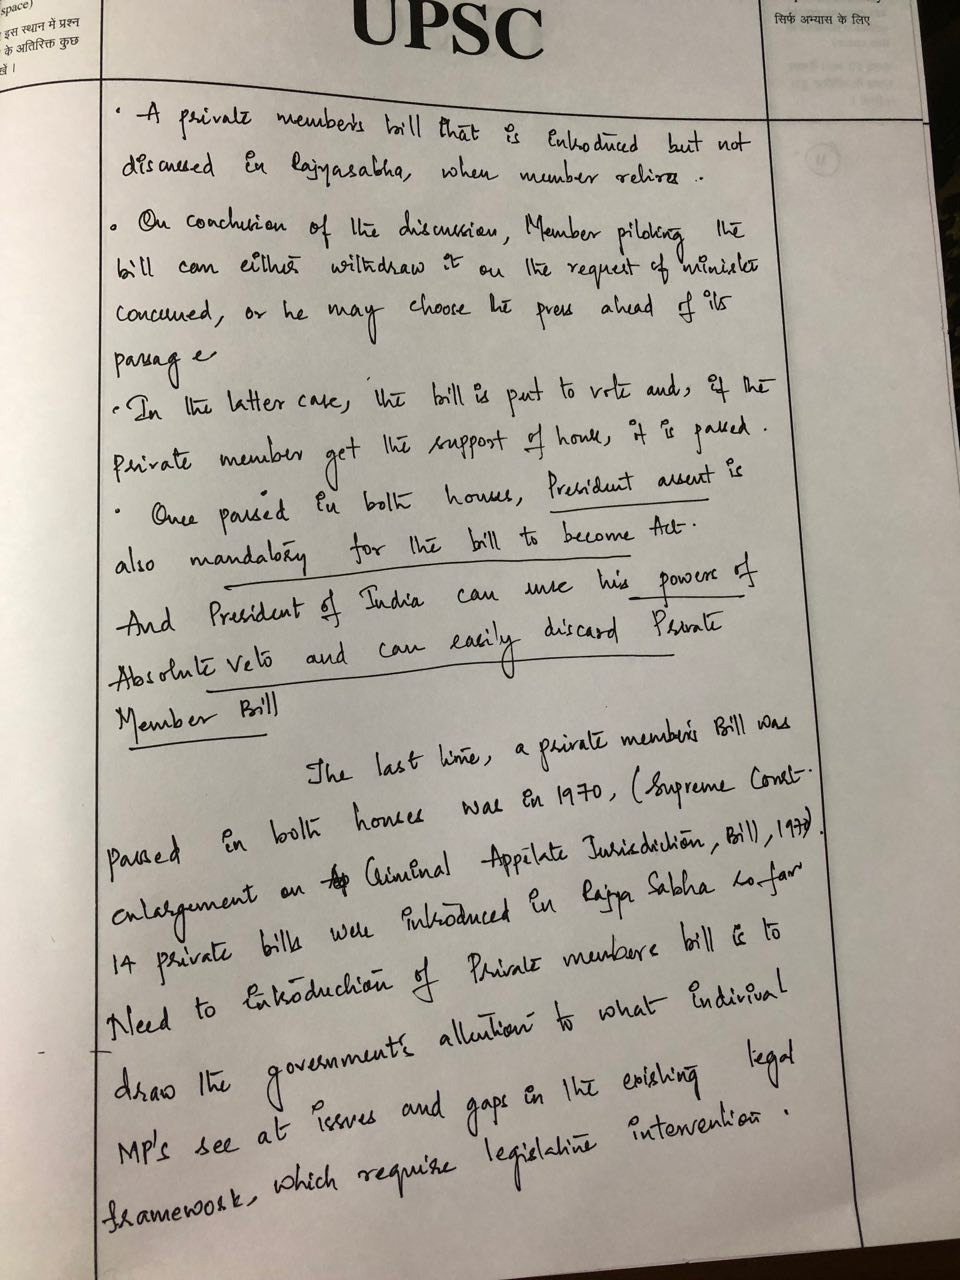 space)
इस स्थान में प्रश्न
के अतिरिक्त कुछ
खें ।
UPSC
सिर्फ अभ्यास के लिए
• A private member's bill that is introduced but not
discussed in Rajyasabha, when member retires.
• On conclusion of the discussion, Member piloting the
bill can either withdraw it on the request of minister
concerned, or he may choose the press ahead of its
passage
• In the latter case, the bill is put to vote and, if the
private member get the support of house, it is passed.
• Once passed in both houses, President assent is
also mandatory for the bill to become Act.
And President of India can use his powers of
Absolute Veto and can easily discard Private
Member Bill
The last time, a private member's Bill was
passed in both houses was in 1970, (Supreme Court
enlargement on Criminal Appilate Jurisdiction, Bill, 1970).
14 private bills were introduced in Rajya Sabha so far
Need to introduction of Private members bill is to
draw the government's attention to what indivival
MP's see at issues and gaps in the existing legal
framework, which require legislative intervention.